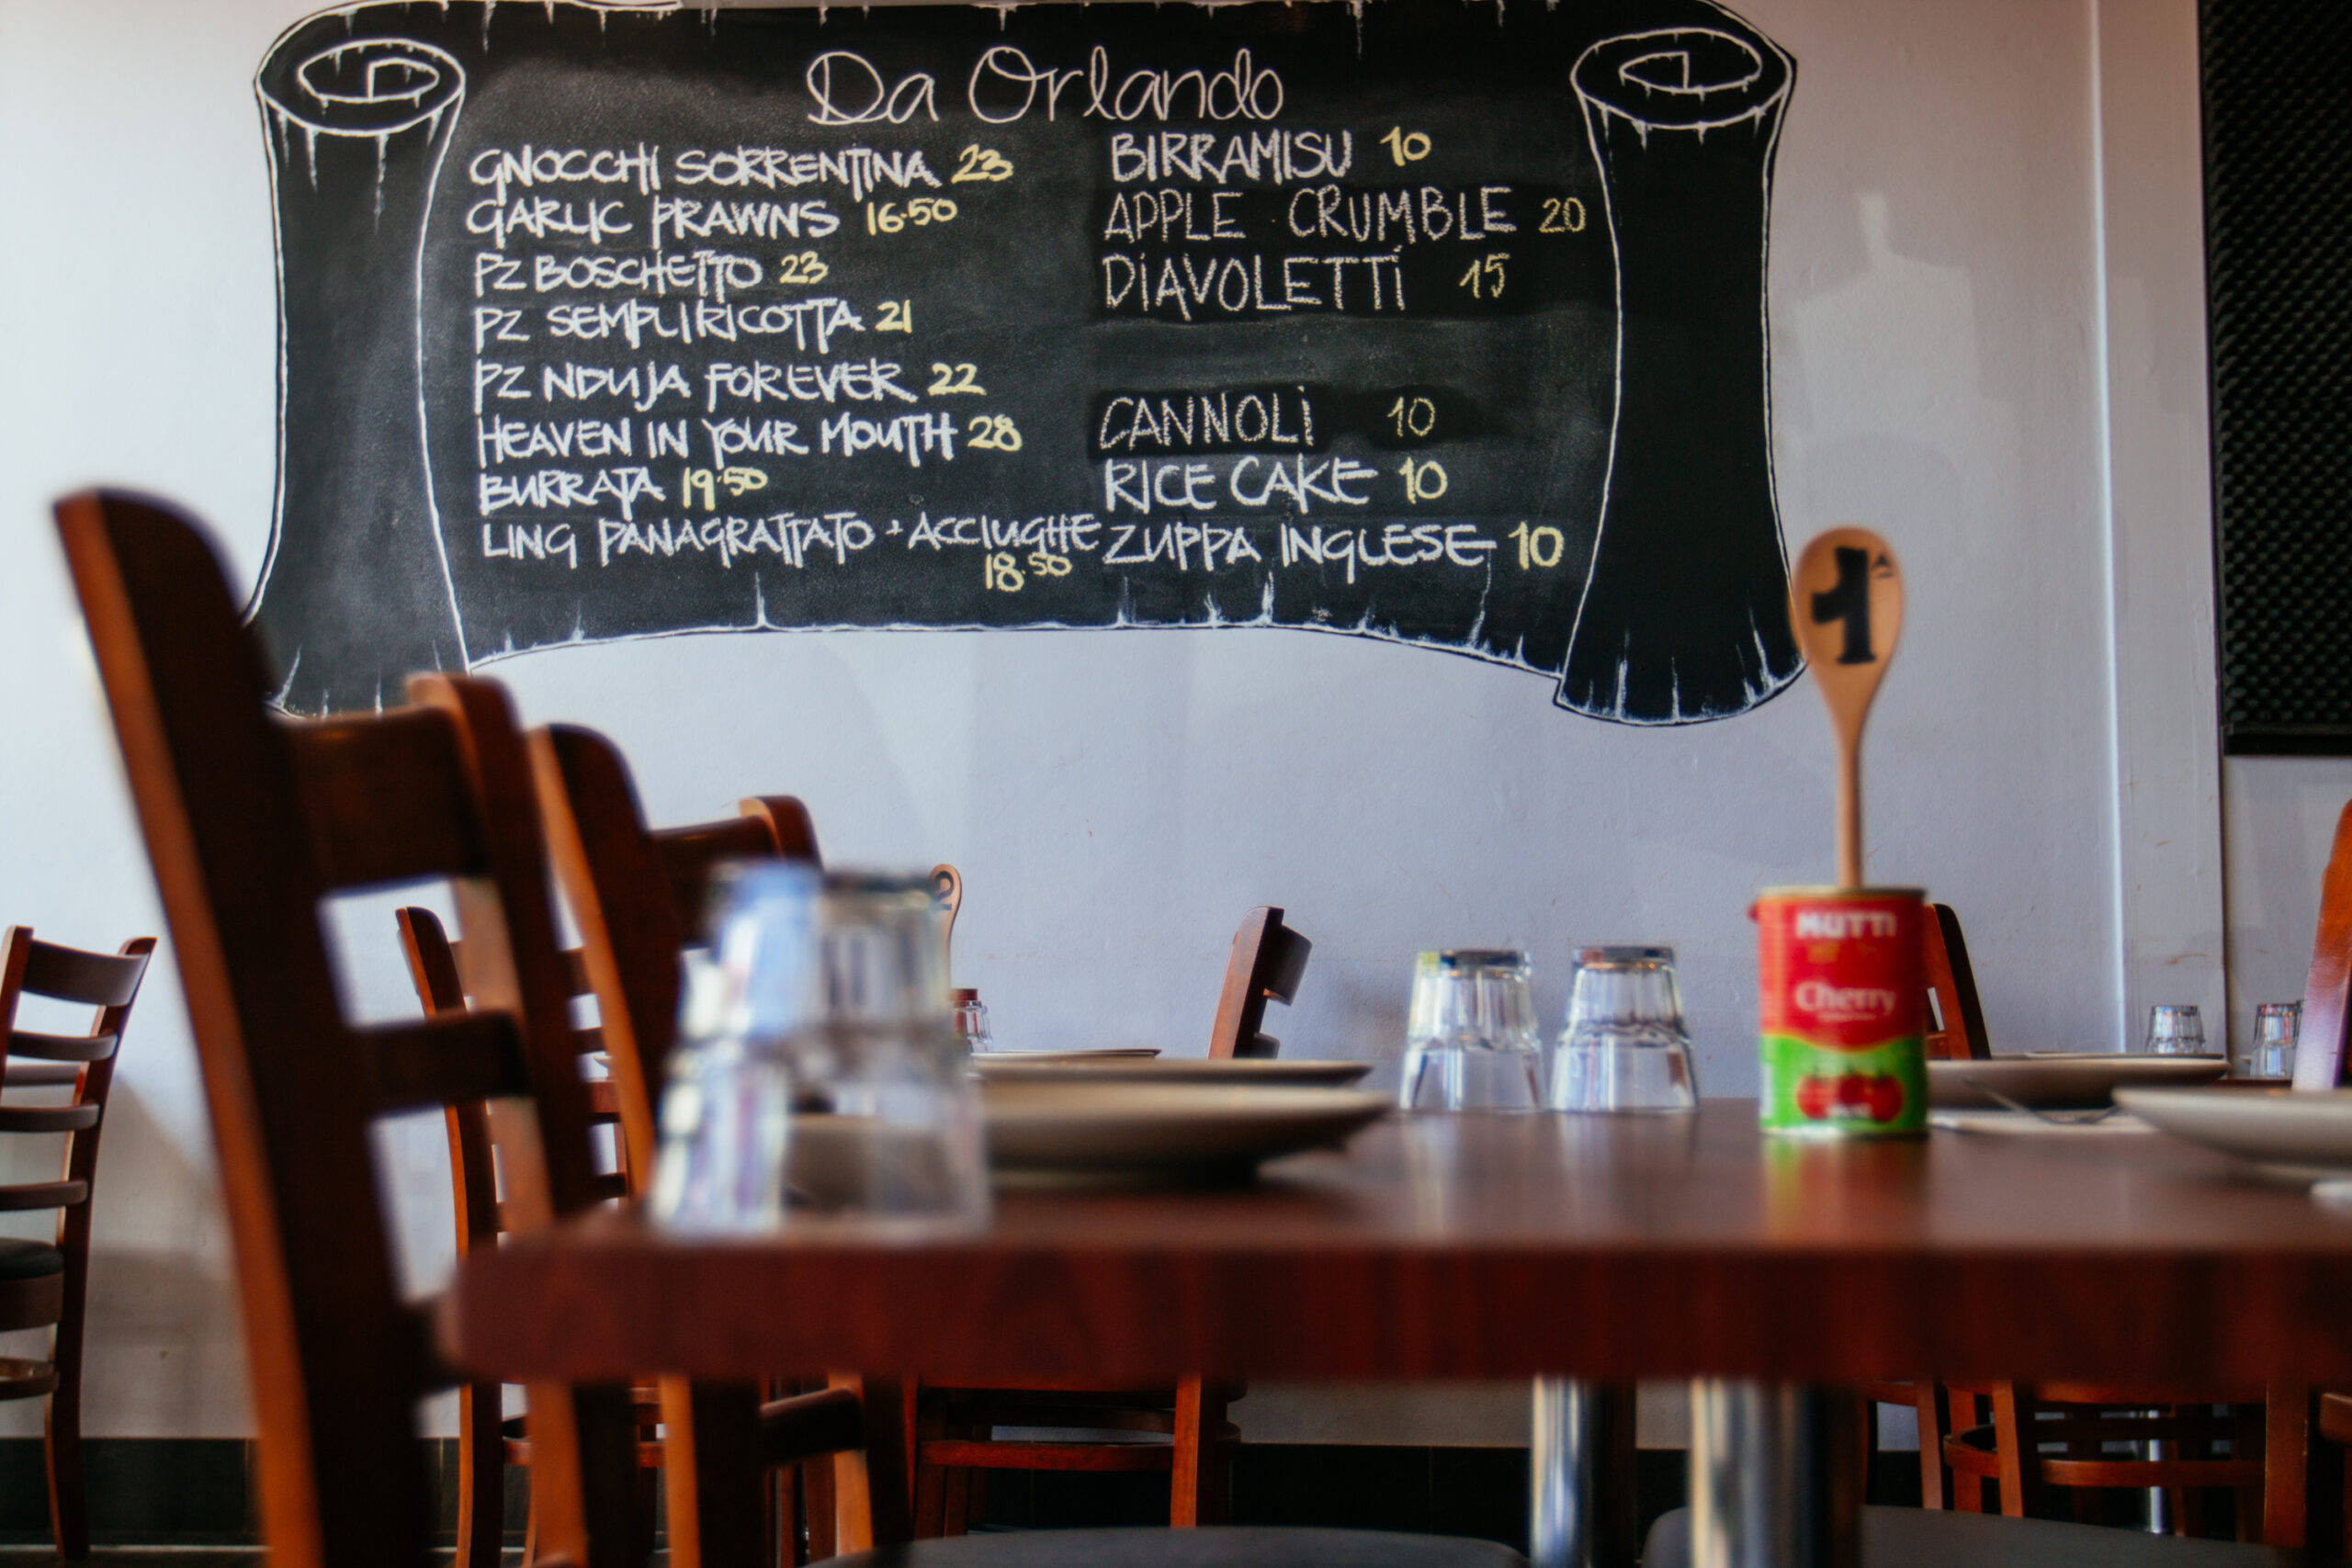 Da Orlando
GNOCCHI SORRENTINA 23
GARLIC PRAWNS 16.50
PZ BOSCHETTO 23
PZ SEMPLIRICOTTA 21
PZ NDUJA FOREVER 22
HEAVEN IN YOUR MOUTH 28
BURRATA 19.50
LING PANAGRATTATO + ACCIUGHE
18.50
BIRRAMISU 10
APPLE CRUMBLE 20
DIAVOLETTI 15
CANNOLI 10
RICE CAKE 10
ZUPPA INGLESE 10
1A
2
MUTTI
Cherry